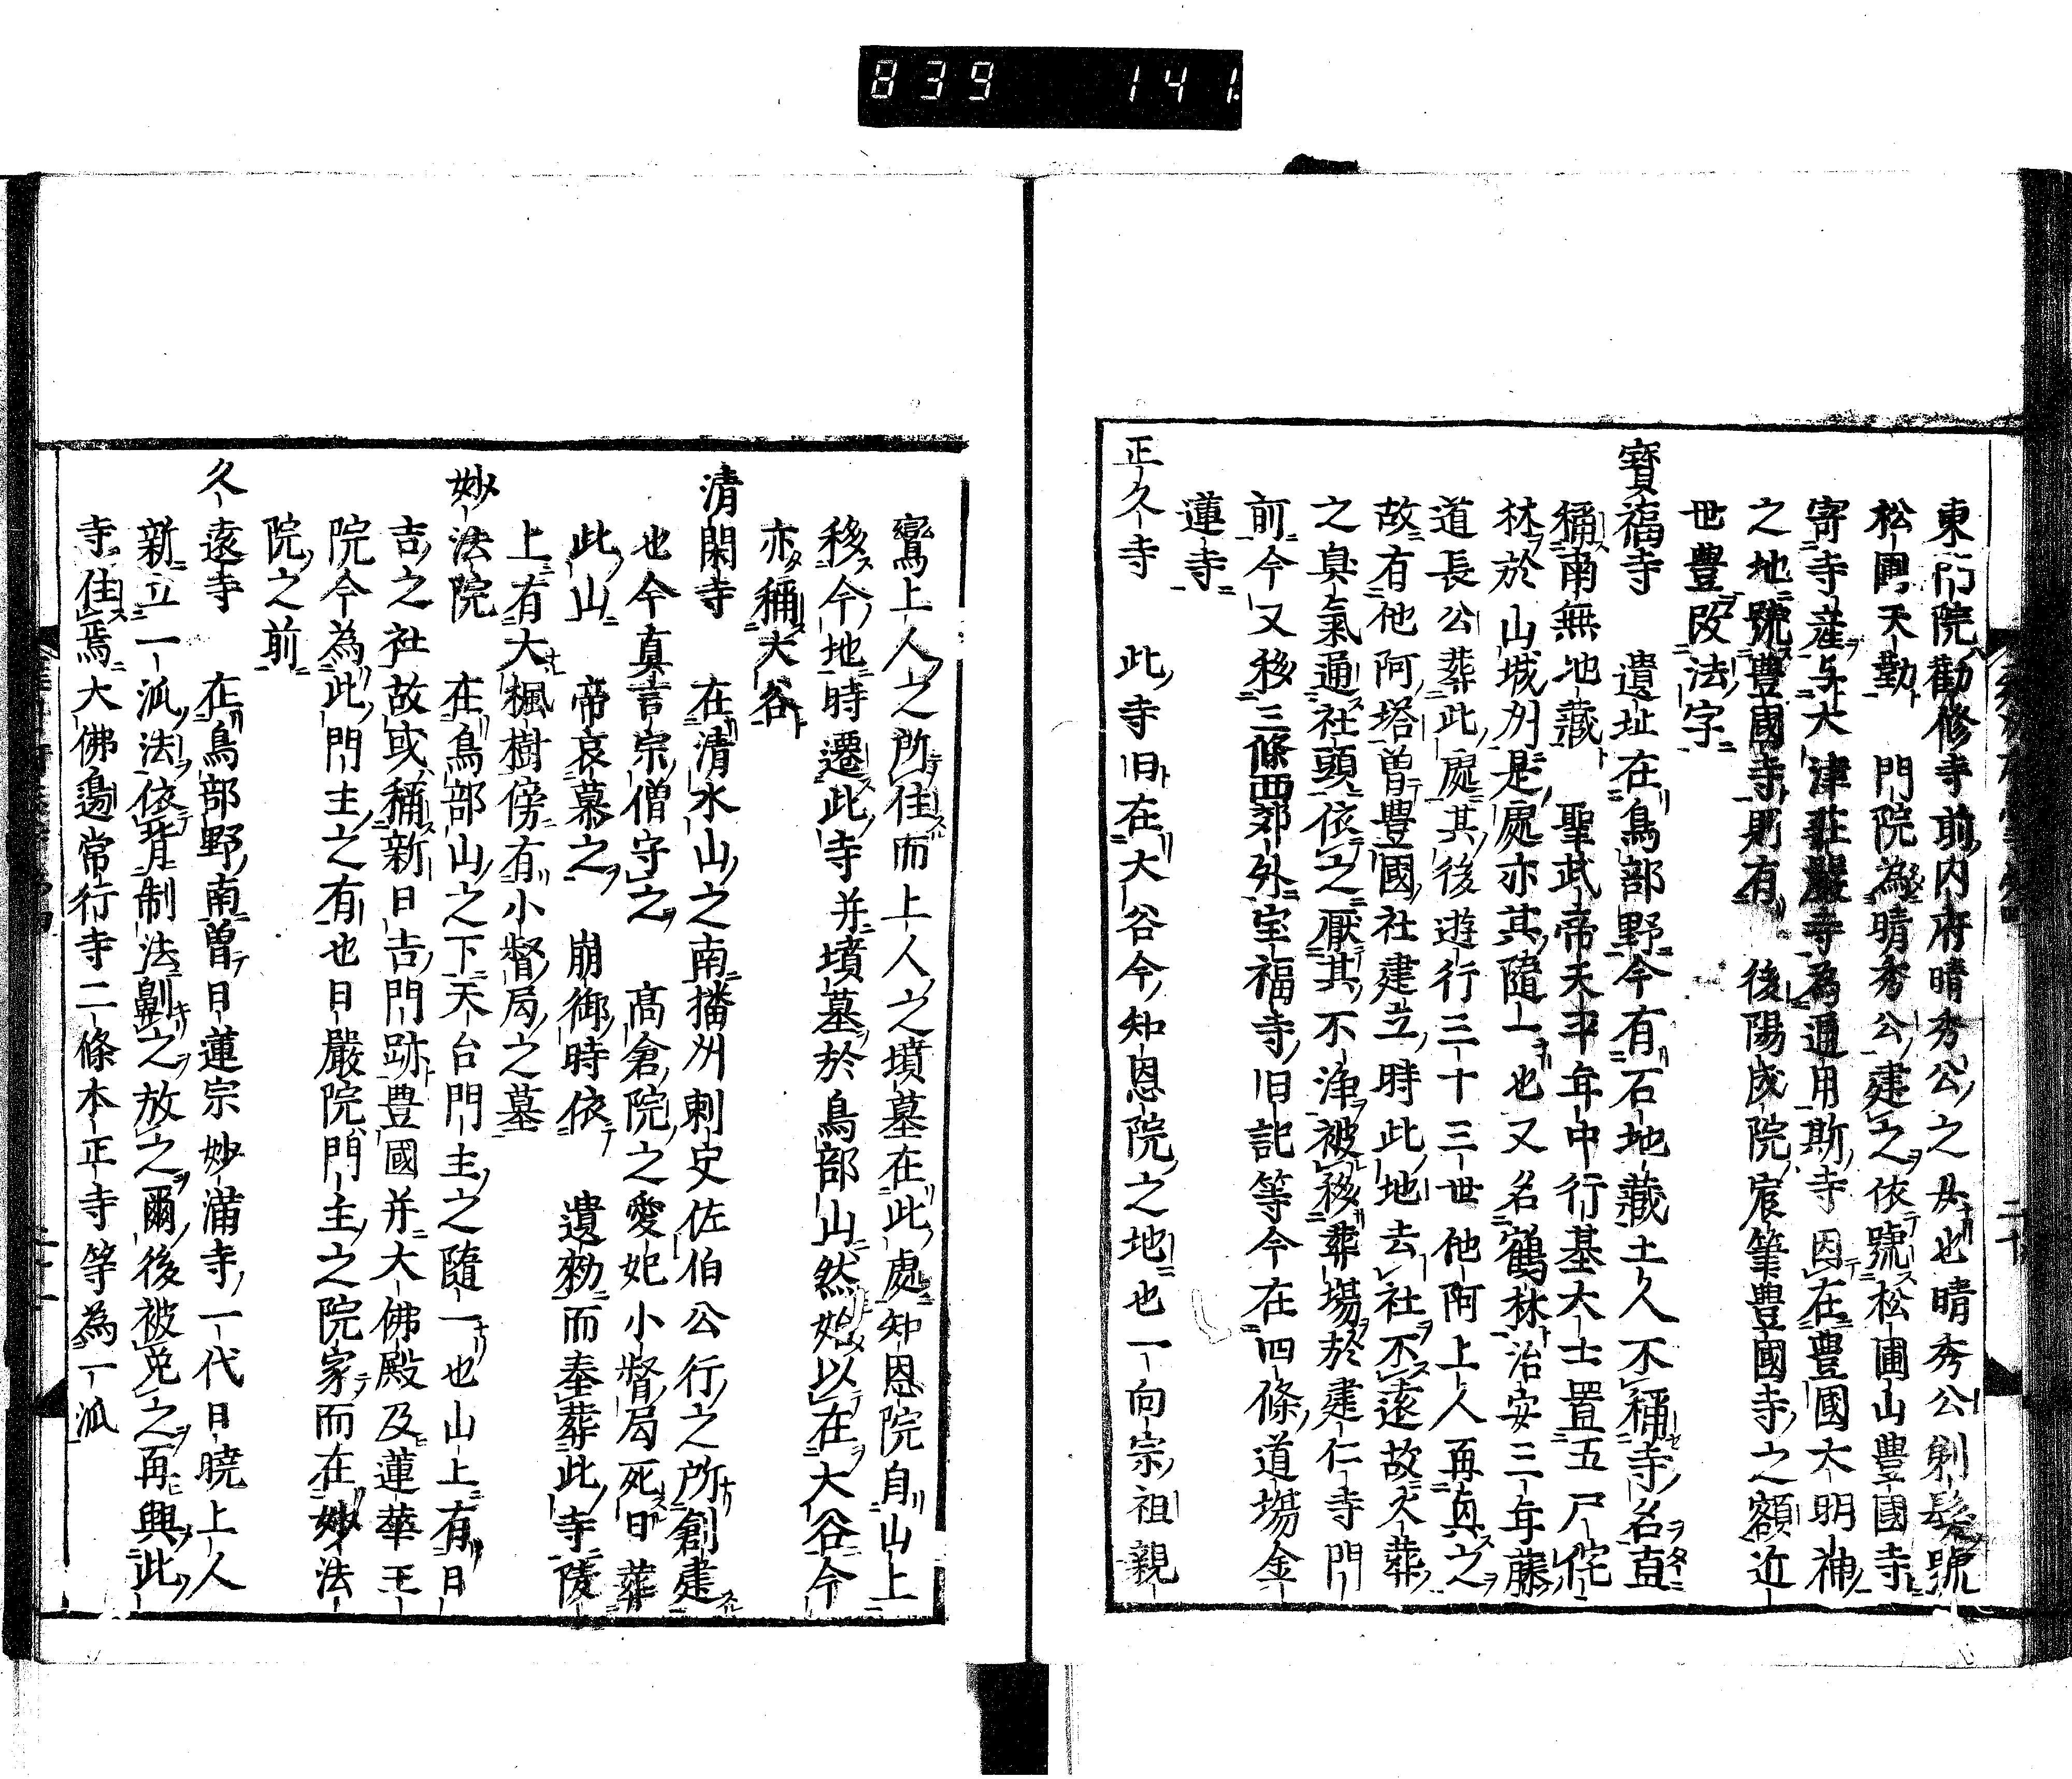 839 141
東門院勸修寺前内府晴秀公之母也晴秀公剃髮號
松圃天勤 門院為晴秀公建之依號松圃山豊國寺
寄寺産与大津莊嚴寺為通用斯寺因在豊國大明神
之地號豊國寺則有 後陽成院宸筆豊國寺之額近
世豊改法字
寶福寺 遺址在鳥部野今有石地藏土人不稱寺名直
稱南無地藏 聖武帝天平年中行基大士置五尸侘
林於山城州是處亦其隨一也又名鶴林治安三年藤
道長公葬此處其後遊行三十三世他阿上人再真之
故有他阿塔曽豊國社建立時此地去社不遠故火葬
之臭氣通社頭依之厭其不浄被移葬場於建仁寺門
前今又移三條西郊外宝福寺旧記等今在四條道場金
蓮寺
正久寺 此寺旧在大谷今知恩院之地也一向宗祖親
鸞上人之所住而上人之墳墓在此處知恩院自山上
移今地時遷此寺并墳墓於鳥部山然始以在大谷今
亦稱大谷
清閑寺 在清水山之南播州刺史佐伯公行之所創建
也今真言宗僧守之 高倉院之愛妃小督局死日葬
此山 帝哀慕之 崩御時依 遺勅而奉葬此寺陵
上有大楓樹傍有小督局之墓
妙法院 在鳥部山之下天台門主之隨一也山上有日
吉之社故或稱新日吉門跡豊國并大佛殿及蓮華王
院今為此門主之有也日嚴院門主之院家而在妙法
院之前
久遠寺 在鳥部野南曽日蓮宗妙満寺一代日曉上人
新立一派法依背制法劓之放之爾後被免之再興此
寺住焉大佛邊常行寺二條本正寺等為一派